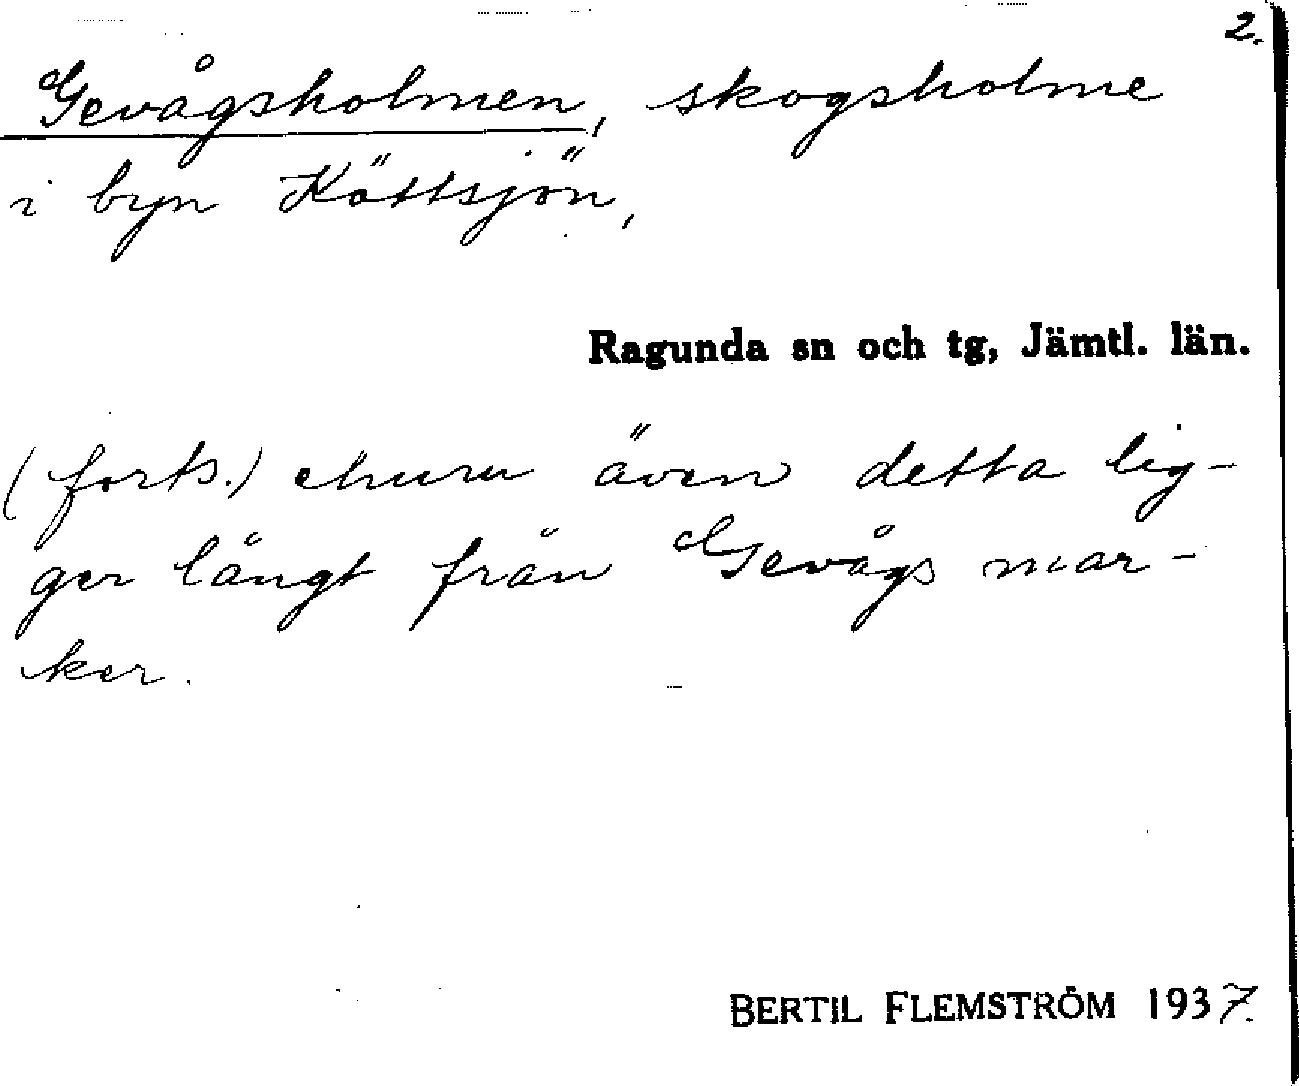 2.
Gevågsholmen, skogsholme
i byn Köttsjön,
Ragunda sn och tg, Jämtl. län.
(forts.) ehuru även detta lig-
ger långt från Gevågs mar-
ker.
BERTIL FLEMSTRÖM 1937.